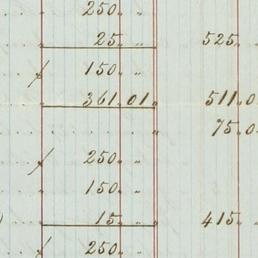 250 „ „
25 „ „ 525 „
150 „ „
361 „ 01 „ 511 „ 0
75 „ 0
250 „ „
150 „ „
15 „ „ 415 „
250 „ „